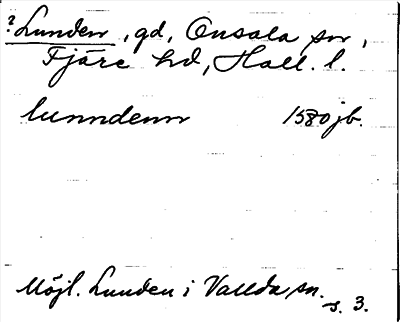 ? Lunden, gd, Onsala sn,
Fjäre hd, Hall. l.
lunndenn 1580 jb.
Möjl. Lunden i Vallda sn.
s. 3.